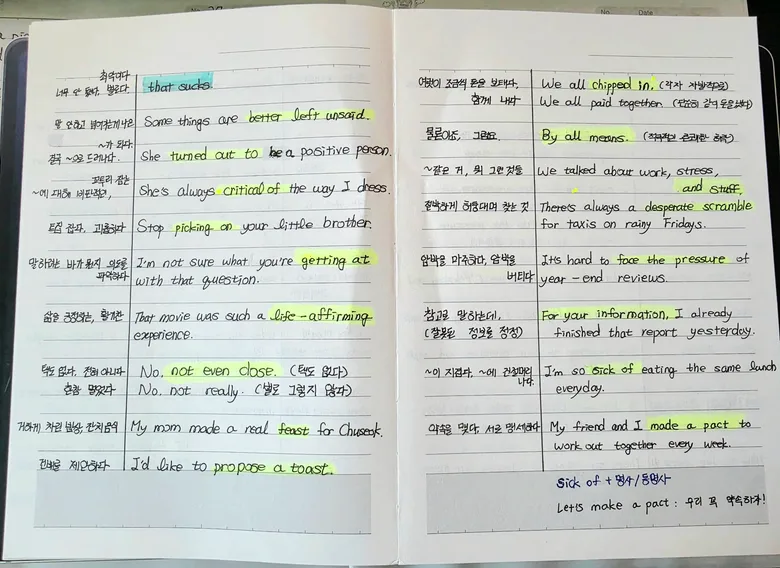 최악이다
너무 안 좋다, 별로다.
that sucks.
말 안하고 넘어가는게 나은
Some things are better left unsaid.
~가 되다.
결국 ~으로 드러나다.
She turned out to be a positive person.
꼬투리 잡는
~에 대해 비판적인,
She's always critical of the way I dress.
트집 잡다, 괴롭히다
Stop picking on your little brother.
말하려는 바가 뭔지 의도를
파악하다
I'm not sure what you're getting at
with that question.
삶을 긍정하는, 활기찬
That movie was such a life-affirming
experience.
턱도 없다, 전혀 아니다
No, not even close. (턱도 없다)
한참 멀었다
No, not really. (별로 그렇지 않다)
거하게 차린 밥상, 잔치음식
My mom made a real feast for Chuseok.
건배를 제안하다
I'd like to propose a toast.
여럿이 조금씩 돈을 보태다,
함께 내다
We all chipped in. (각자 자발적으로)
We all paid together
물론이죠, 그럼요.
By all means.
~같은 거, 뭐 그런 것들
We talked about work, stress,
and stuff.
절박하게 허둥대며 찾는 것
There's always a desperate scramble
for taxis on rainy Fridays.
압박을 마주하다, 압박을
버티다
It's hard to face the pressure of
year-end reviews.
참고로 말하는데,
(잘못된 정보를 정정)
For your information, I already
finished that report yesterday.
~이 지겹다, ~에 진절머리
나다.
I'm so sick of eating the same lunch
everyday.
약속을 맺다, 서로 맹세하다
My friend and I made a pact to
work out together every week.
Sick of + 명사/동명사
Let's make a pact : 우리 꼭 약속하자!
No.
Date